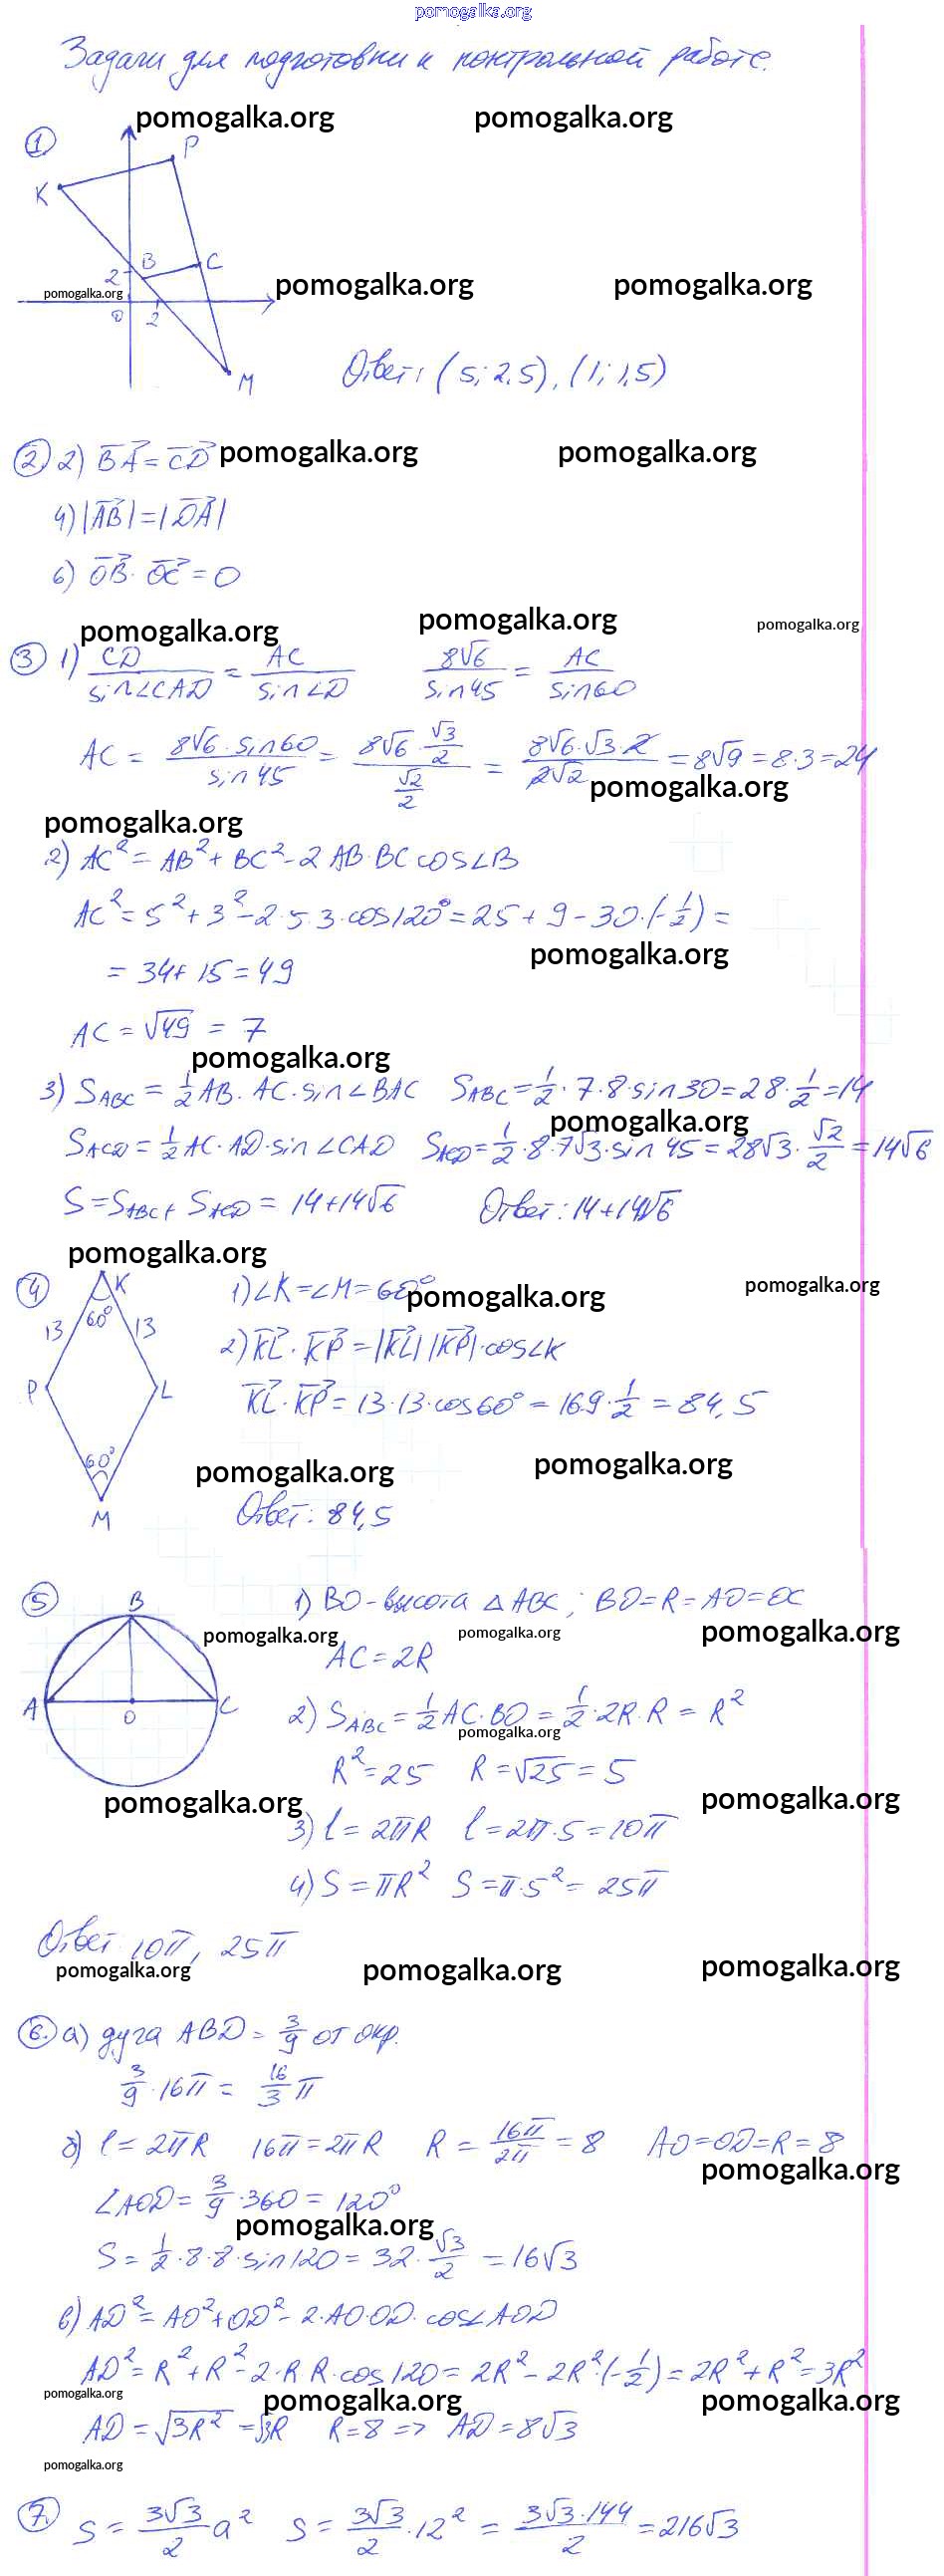 pomogalka.org
Задачи для подготовки к контрольной работе.
pomogalka.org pomogalka.org
1
P
K
B C
2
pomogalka.org pomogalka.org pomogalka.org
0 2
M
Ответ: (5; 2,5), (1; 1,5)
2. 2) BA⃗ = CD⃗ pomogalka.org pomogalka.org
4) |AB⃗| = |DA⃗|
6) OB⃗ · OC⃗ = 0
pomogalka.org pomogalka.org pomogalka.org
3 1) CD/sin∠CAD = AC/sin∠D 8√6/sin45 = AC/sin60
AC = 8√6·sin60/sin45 = (8√6·√3/2)/(√2/2) = 8√6·√3·2/2√2 = 8√9 = 8·3 = 24
pomogalka.org
pomogalka.org
2) AC² = AB² + BC² - 2 AB·BC cos∠B
AC² = 5² + 3² - 2·5·3·cos120° = 25 + 9 - 30·(-1/2) =
pomogalka.org
= 34 + 15 = 49
AC = √49 = 7
pomogalka.org
3) S_ABC = 1/2 AB·AC·sin∠BAC S_ABC = 1/2·7·8·sin30 = 28·1/2 = 14
pomogalka.org
S_ACD = 1/2 AC·AD·sin∠CAD S_ACD = 1/2·8·7√3·sin45 = 28√3·√2/2 = 14√6
S = S_ABC + S_ACD = 14+14√6 Ответ: 14+14√6
pomogalka.org
4 K 1) ∠K = ∠M = 60° pomogalka.org pomogalka.org
60°
13 13
2) KL⃗ · KP⃗ = |KL⃗| |KP⃗|·cos∠K
P L
KL⃗ · KP⃗ = 13·13·cos60° = 169·1/2 = 84,5
60°
pomogalka.org pomogalka.org
M
Ответ: 84,5
5 B 1) BO - высота △ABC; BO = R = AO = OC
pomogalka.org pomogalka.org pomogalka.org
AC = 2R
A O C
2) S_ABC = 1/2 AC·BO = 1/2·2R·R = R²
pomogalka.org
R² = 25 R = √25 = 5
pomogalka.org pomogalka.org
3) l = 2πR l = 2π·5 = 10π
4) S = πR² S = π·5² = 25π
Ответ 10π, 25π
pomogalka.org pomogalka.org pomogalka.org
6. а) дуга ABD = 3/9 от окр.
3/9·16π = 16/3 π
б) l = 2πR 16π = 2πR R = 16π/2π = 8 AO = OD = R = 8
pomogalka.org
∠AOD = 3/9·360 = 120°
pomogalka.org
S = 1/2·8·8·sin120 = 32·√3/2 = 16√3
в) AD² = AO² + OD² - 2·AO·OD·cos∠AOD
AD² = R² + R² - 2·R·R·cos120 = 2R² - 2R²·(-1/2) = 2R² + R² = 3R²
pomogalka.org pomogalka.org pomogalka.org
AD = √3R² = √3R R = 8 => AD = 8√3
pomogalka.org
7. S = 3√3/2 a² S = 3√3/2·12² = 3√3·144/2 = 216√3